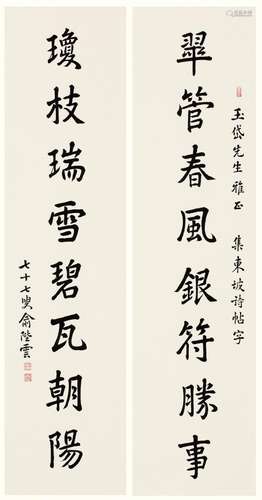 玉岱先生雅正　集東坡詩帖字
翠管春風銀符勝事
瓊枝瑞雪碧瓦朝陽
七十七叟俞陛雲